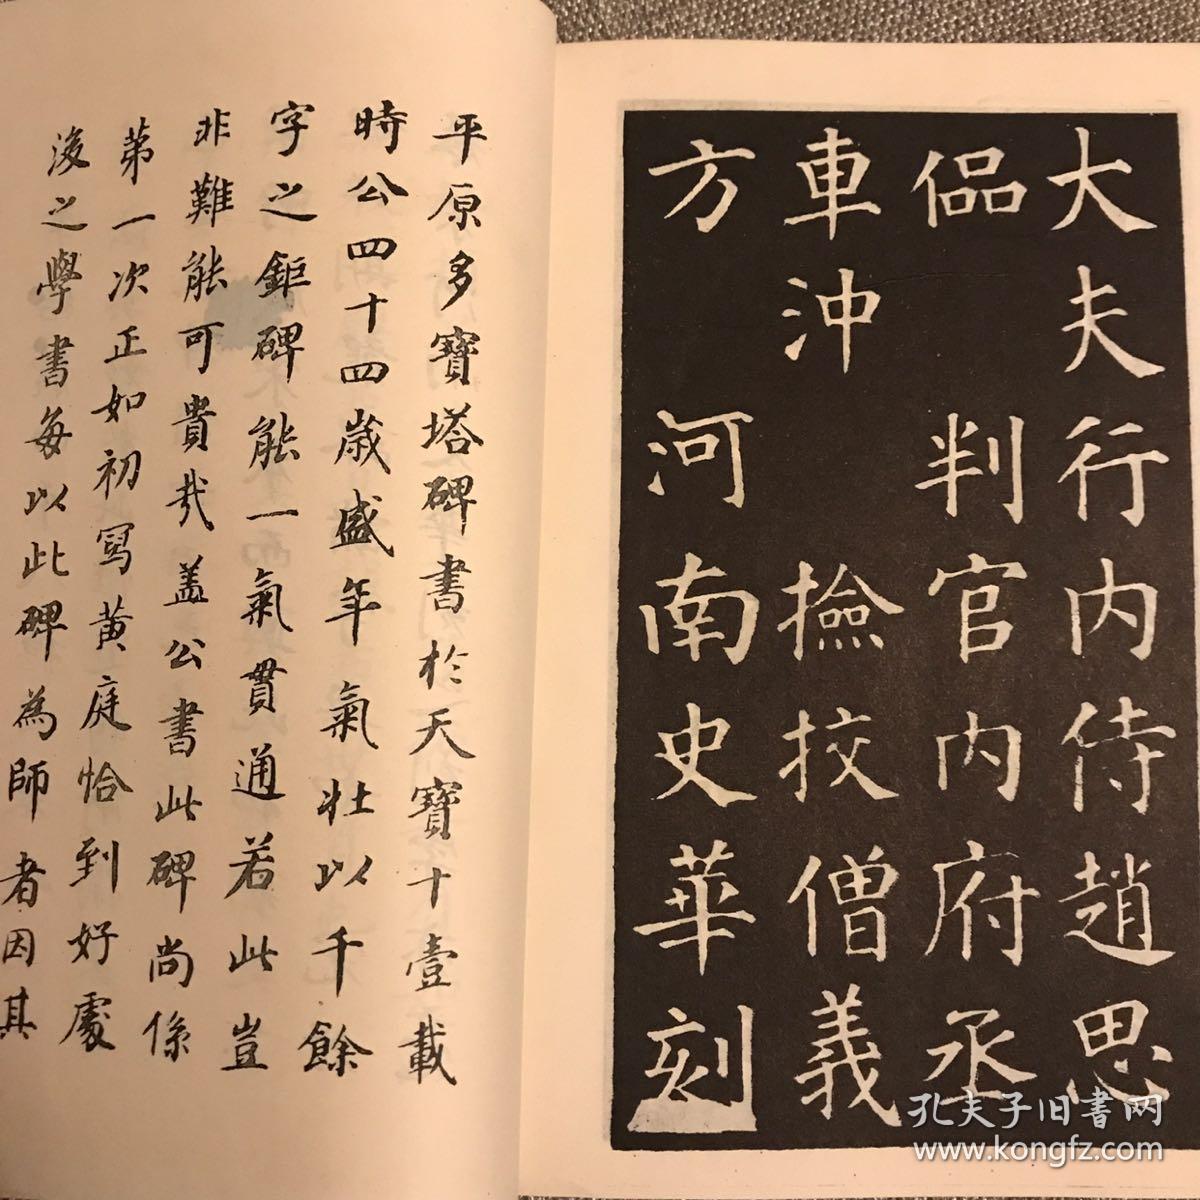 大夫行內侍趙思
偘　判官內府丞
車沖　撿挍僧義
方　河南史華刻
平原多寶塔碑書於天寶十壹載
時公四十四歲盛年氣壯以千餘
字之鉅碑能一氣貫通若此豈
非難能可貴哉蓋公書此碑尚係
第一次正如初寫黃庭恰到好處
後之學書每以此碑為師者因其
孔夫子旧书网
www.kongfz.com